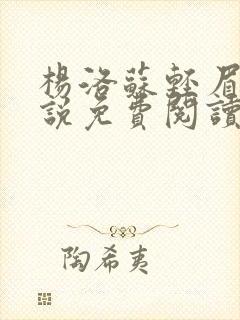 楊洛蘇輕眉
說免費閱讀
陶希夷